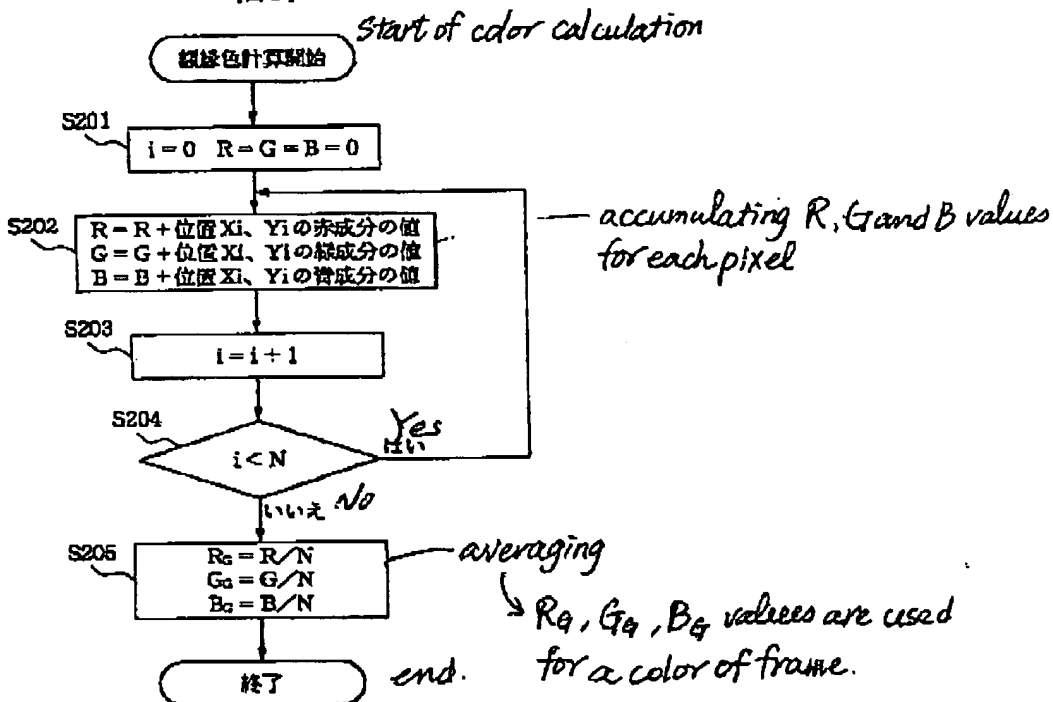 Start of color calculation
額縁色計算開始
S201
i=0 R=G=B=0
S202
R=R+位置Xi、Yiの赤成分の値
G=G+位置Xi、Yiの緑成分の値
B=B+位置Xi、Yiの青成分の値
accumulating R, G and B values
for each pixel
S203
i=i+1
S204
i<N
Yes
はい
いいえ No
S205
RG=R/N
GG=G/N
BG=B/N
averaging
RG, GG, BG values are used
for a color of frame.
終了
end.